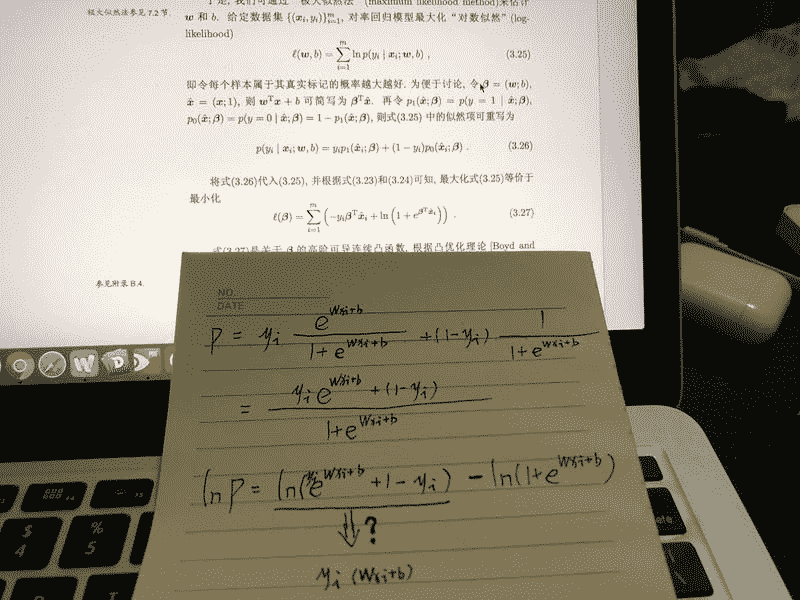 极大似然法参见 7.2 节.
了是, 我们可通过 "极大似然法" (maximum likelihood method)来估计
w 和 b. 给定数据集 {(xᵢ, yᵢ)}ᵐᵢ₌₁, 对率回归模型最大化"对数似然" (log-
likelihood)
ℓ(w, b) = ∑ᵐᵢ₌₁ ln p(yᵢ | xᵢ; w, b) , (3.25)
即令每个样本属于其真实标记的概率越大越好. 为便于讨论, 令 β = (w; b),
x̂ = (x; 1), 则 wᵀx + b 可简写为 βᵀx̂. 再令 p₁(x̂; β) = p(y = 1 | x̂; β),
p₀(x̂; β) = p(y = 0 | x̂; β) = 1 − p₁(x̂; β), 则式(3.25) 中的似然项可重写为
p(yᵢ | xᵢ; w, b) = yᵢp₁(x̂ᵢ; β) + (1 − yᵢ)p₀(x̂ᵢ; β) . (3.26)
将式(3.26)代入(3.25), 并根据式(3.23)和(3.24)可知, 最大化式(3.25)等价于
最小化
ℓ(β) = ∑ᵐᵢ₌₁ (−yᵢβᵀx̂ᵢ + ln(1 + e^{βᵀx̂ᵢ})) . (3.27)
式(3.27)是关于 β 的高阶可导连续凸函数, 根据凸优化理论 [Boyd and
参见附录 B.4.
NO.
DATE
P = yᵢ e^{wxᵢ+b} / (1 + e^{wxᵢ+b}) + (1−yᵢ) 1 / (1 + e^{wxᵢ+b})
= (yᵢ e^{wxᵢ+b} + (1−yᵢ)) / (1 + e^{wxᵢ+b})
ln P = ln(yᵢe^{wxᵢ+b} + 1 − yᵢ) − ln(1 + e^{wxᵢ+b})
⇓ ?
yᵢ (wxᵢ+b)
$
4
%
5